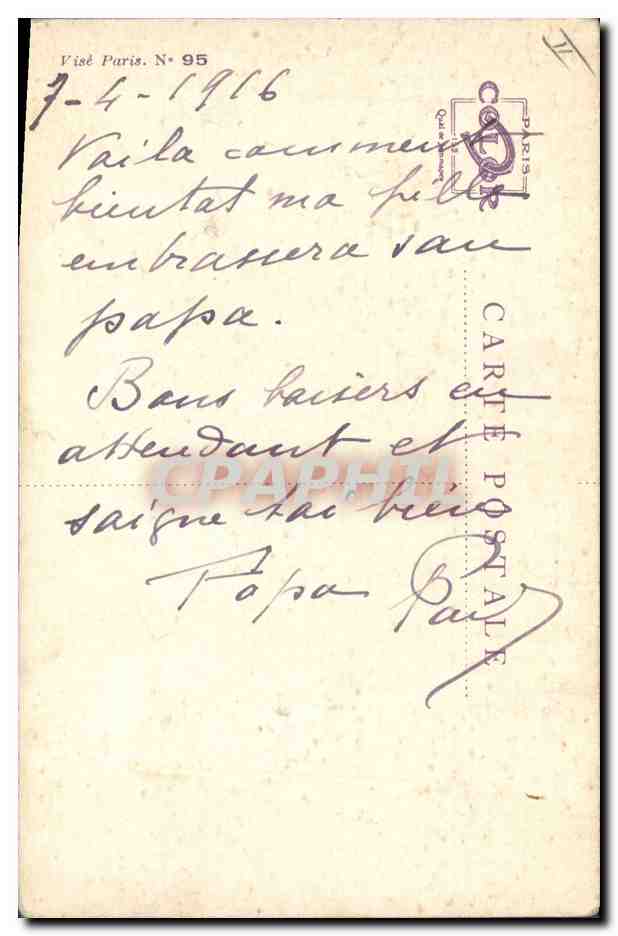 Visé Paris. N° 95
7-4-1916
Voila comment
bientot ma fille
embrassera son
papa.
Bons baisers en
attendant et
soigne toi bien
Papa Paul
PARIS
COLOR
CARTE POSTALE
CPAPHIL